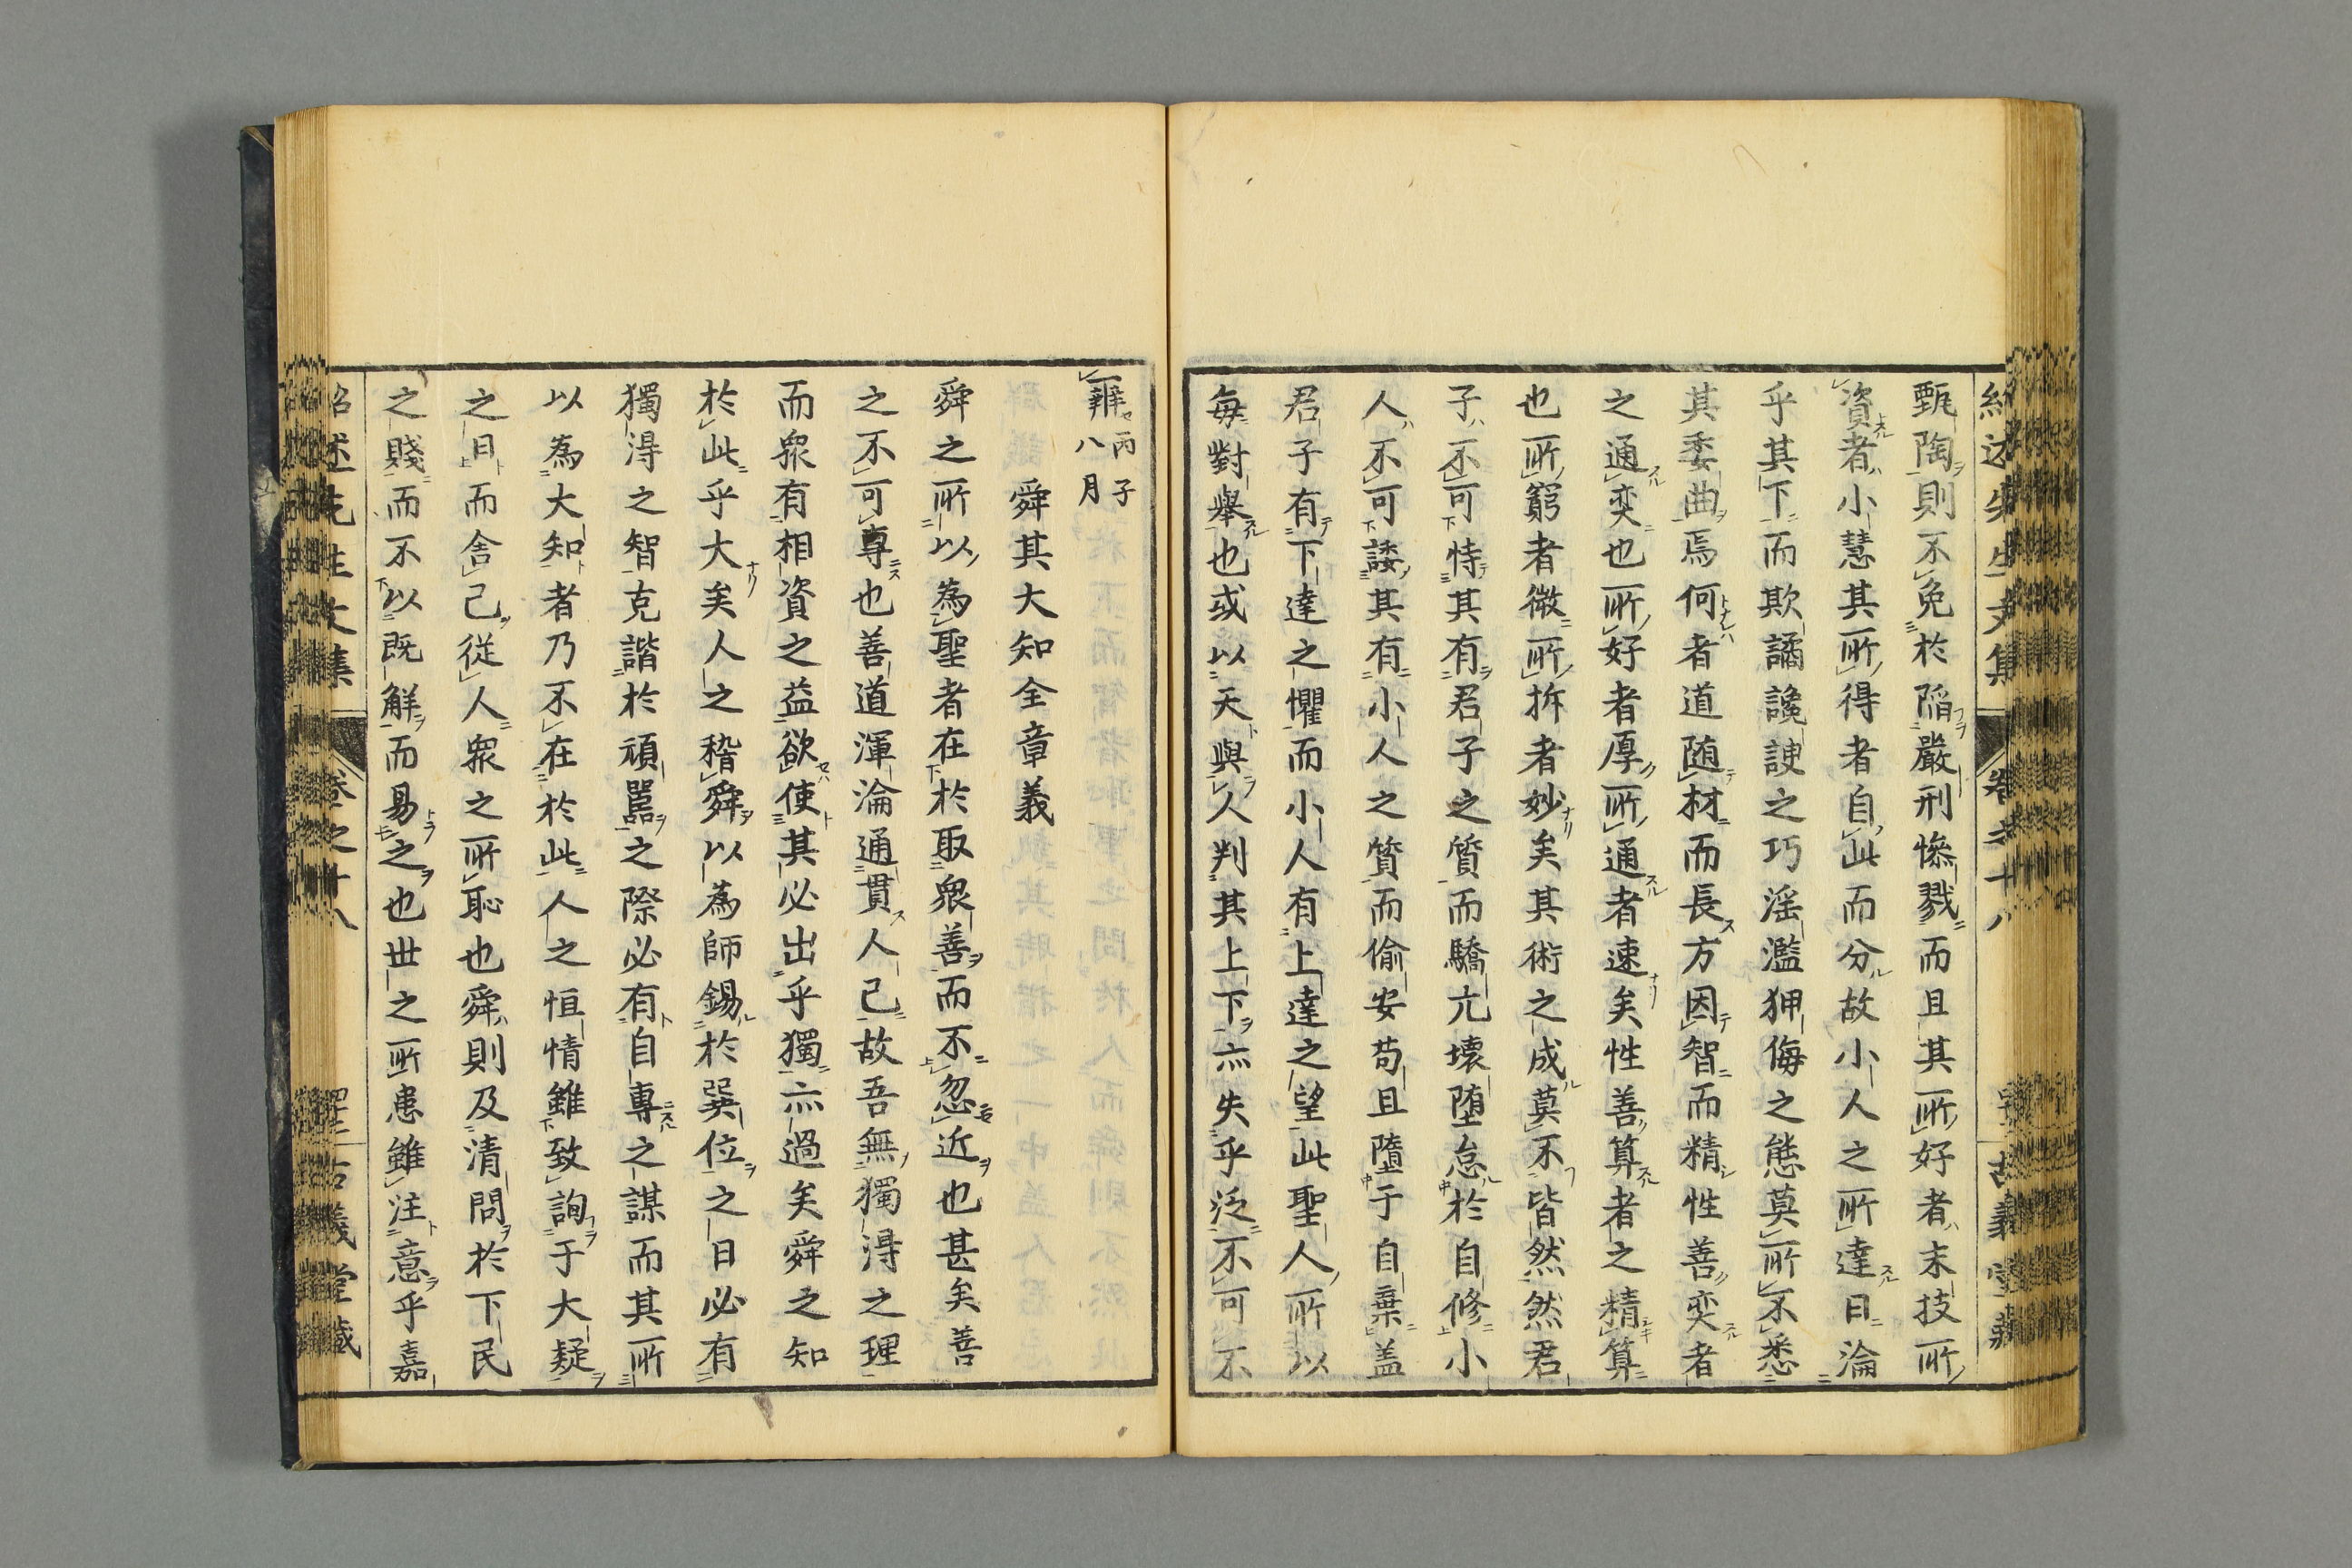 甄陶則不免於陷嚴刑慘戮而且其所好者末技所
資者小慧其所得者自此而分故小人之所達日淪
乎其下而欺譎讒諛之巧淫濫狎侮之態莫所不悉
其委曲焉何者道随材而長方因智而精性善奕者
之通奕也所好者厚所通者速矣性善算者之精算
也所窮者微所拆者妙矣其術之成莫不皆然然君
子不可恃其有君子之質而驕亢壊堕怠於自修小
人不可諉其有小人之質而偷安苟且墮于自棄盖
君子有下達之懼而小人有上達之望此聖人所以
每對舉也或以天與人判其上下亦失乎泛不可不
辨丙子八月
舜其大知全章義
舜之所以為聖者在於取衆善而不忽近也甚矣善
之不可專也善道渾淪通貫人己故吾無獨得之理
而衆有相資之益欲使其必出乎獨亦過矣舜之知
於此乎大矣人之稽舜以為師錫於巽位之日必有
獨得之智克諧於頑嚚之際必有自專之謀而其所
以為大知者乃不在於此人之恒情雖致詢于大疑
之日而舍己從人衆之所恥也舜則及清問於下民
之賤而不以既解而易之也世之所患雖注意乎嘉
紹述先生文集 卷之十八 古義堂藏